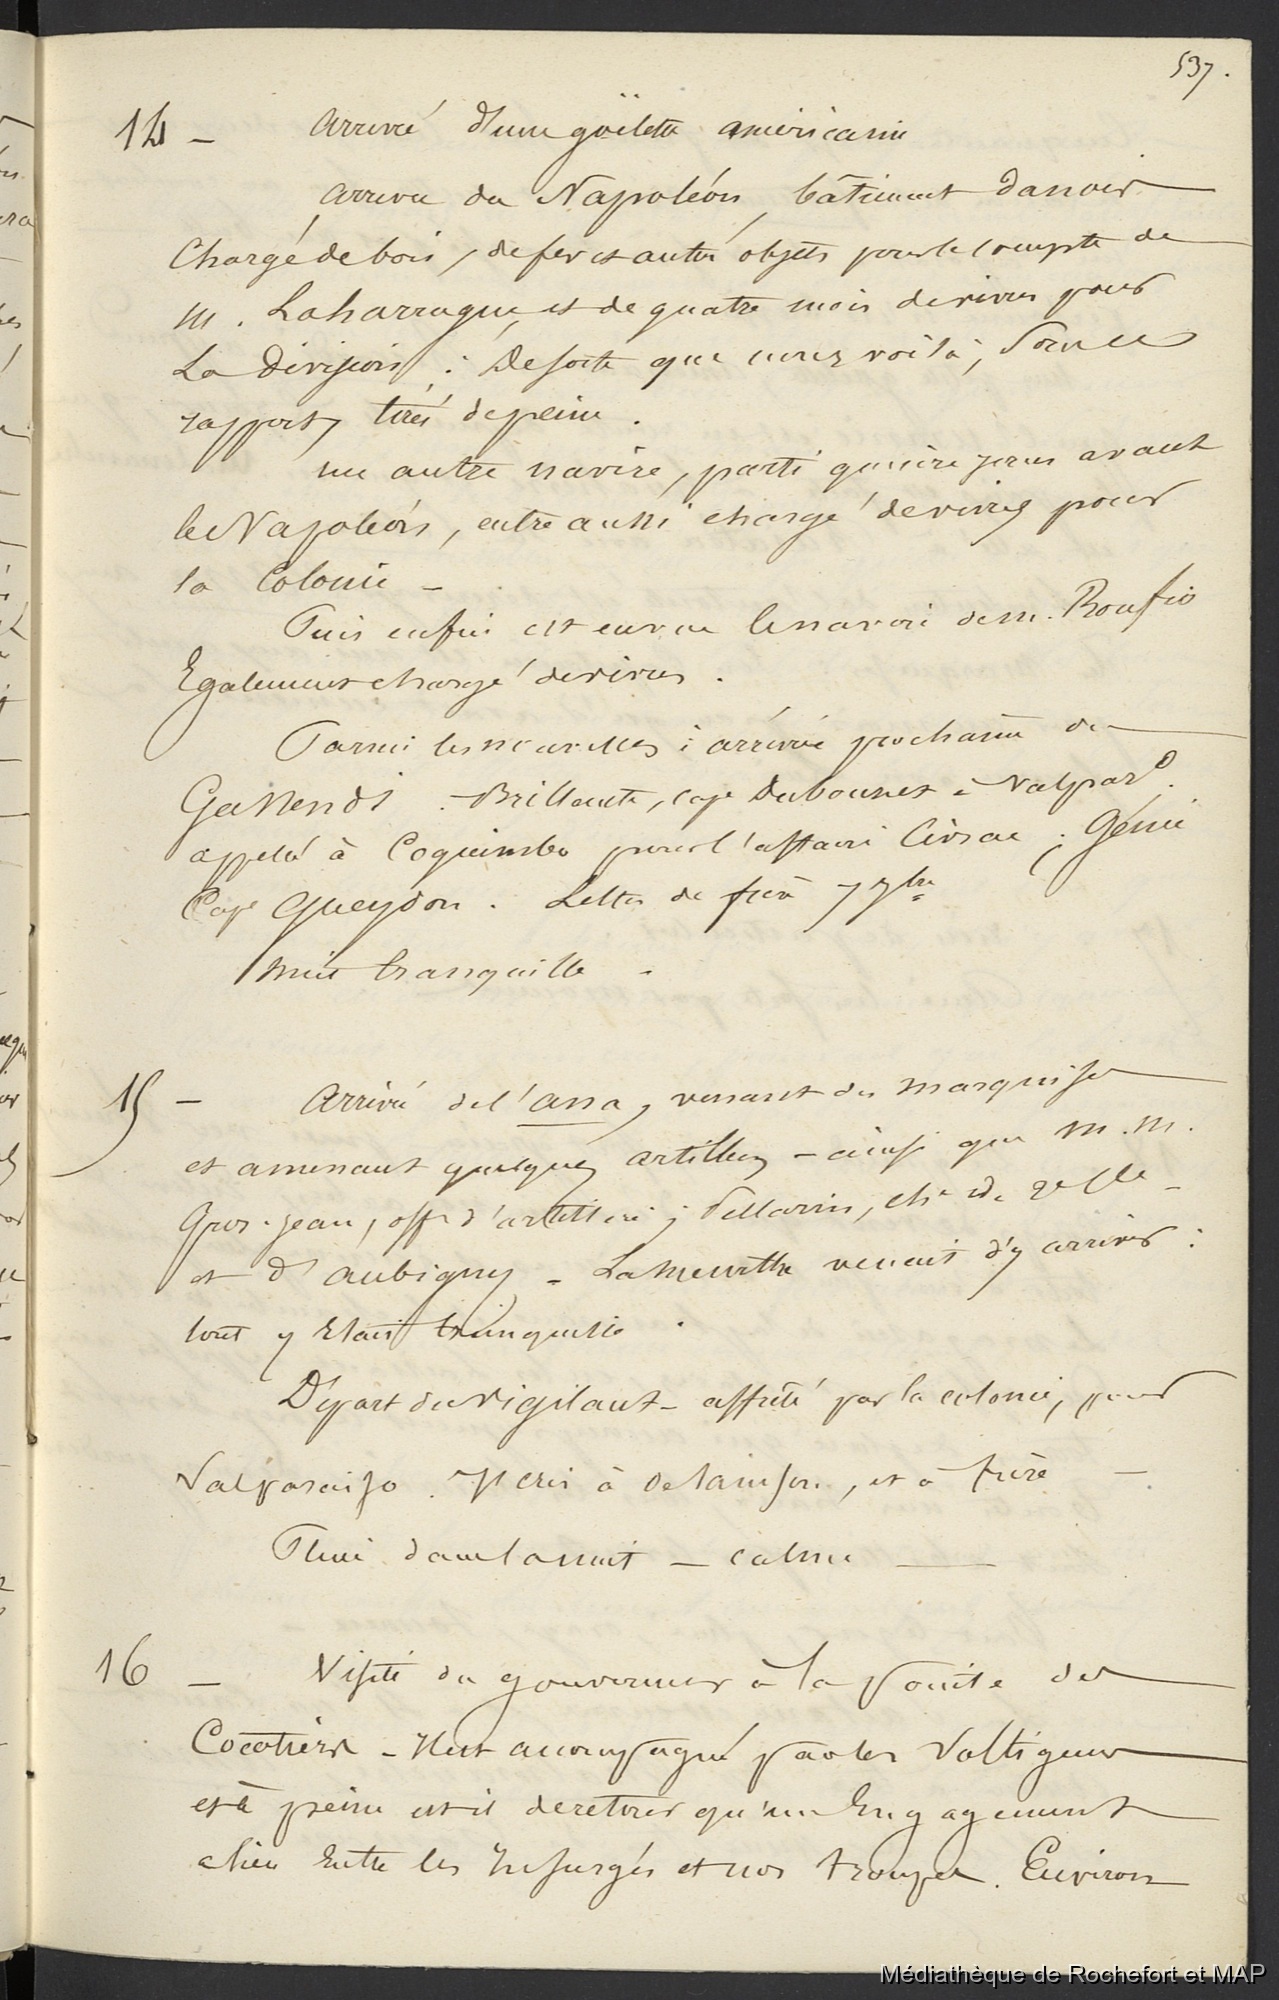 537.
14 - Arrivée d'une goëlette américaine
Arrivée du Napoléon, bâtiment danois
chargé de bois, de fer et autres objets pour le compte de
M. Laharrague, et de quatre mois de vivres pour
la division : De sorte que nous voilà, sous ce
rapport, tirés de peine.
un autre navire, parti quinze jours avant
le Napoléon, entre aussi chargé de vivres pour
la colonie -
Puis enfin est en vue le navire de M.
Egalement chargé de vivres.
Parmi les nouvelles : arrivée prochaine du
Gassendi. Brillante, cape Dubouzet à Valparo.
appelé à Coquimbo pour l'affaire ; Génie
Cape Gueydon. Lettre de frère 7 7bre
Nuit tranquille -
15 - Arrivée de l'Ana, venant des Marquises
et amenant quelques artilleurs - ainsi que M.M.
Gros-jean, offr d'artillerie ; Pellarin, chn de 2e clle -
et d'Aubigny - La Meurthe venait d'y arriver :
tout y était tranquille.
Départ du Vigilant - affrété par la colonie, pour
Valparaiso. J'écris à , et à frère -
Pluie dans la nuit - calme
16 - Visite du gouverneur à la Pointe des
Cocotiers - Il est accompagné par les Voltigeurs
et à peine est-il de retour qu'un Engagement
a lieu Entre les Insurgés et nos troupes. Environ
Médiathèque de Rochefort et MAP